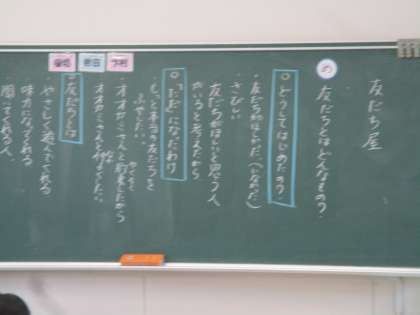 友だち屋
め 友だちとはどんなもの？
○どうしてはじめたの？
・友だちがほしかった（いなかった）
・さびしい
・友だちがほしいと思う人
がいると考えたから
○「ただ」になったわけ
・もっと本当の友だちを
ふやしたい
・オオカミさんと約束したから
やくそく
・オオカミさんと
○友だちとは
・やさしく遊んでくれる
・味方になってくれる
・聞いてくれる人